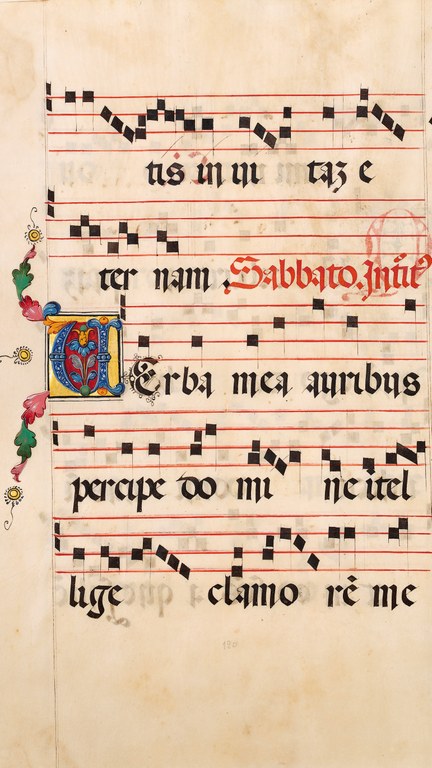 tis in ui taʒ e
ter nam. Sabbato. Intit̄
VErba mea auribus
percipe do mi ne ītel
lige clamo rē me